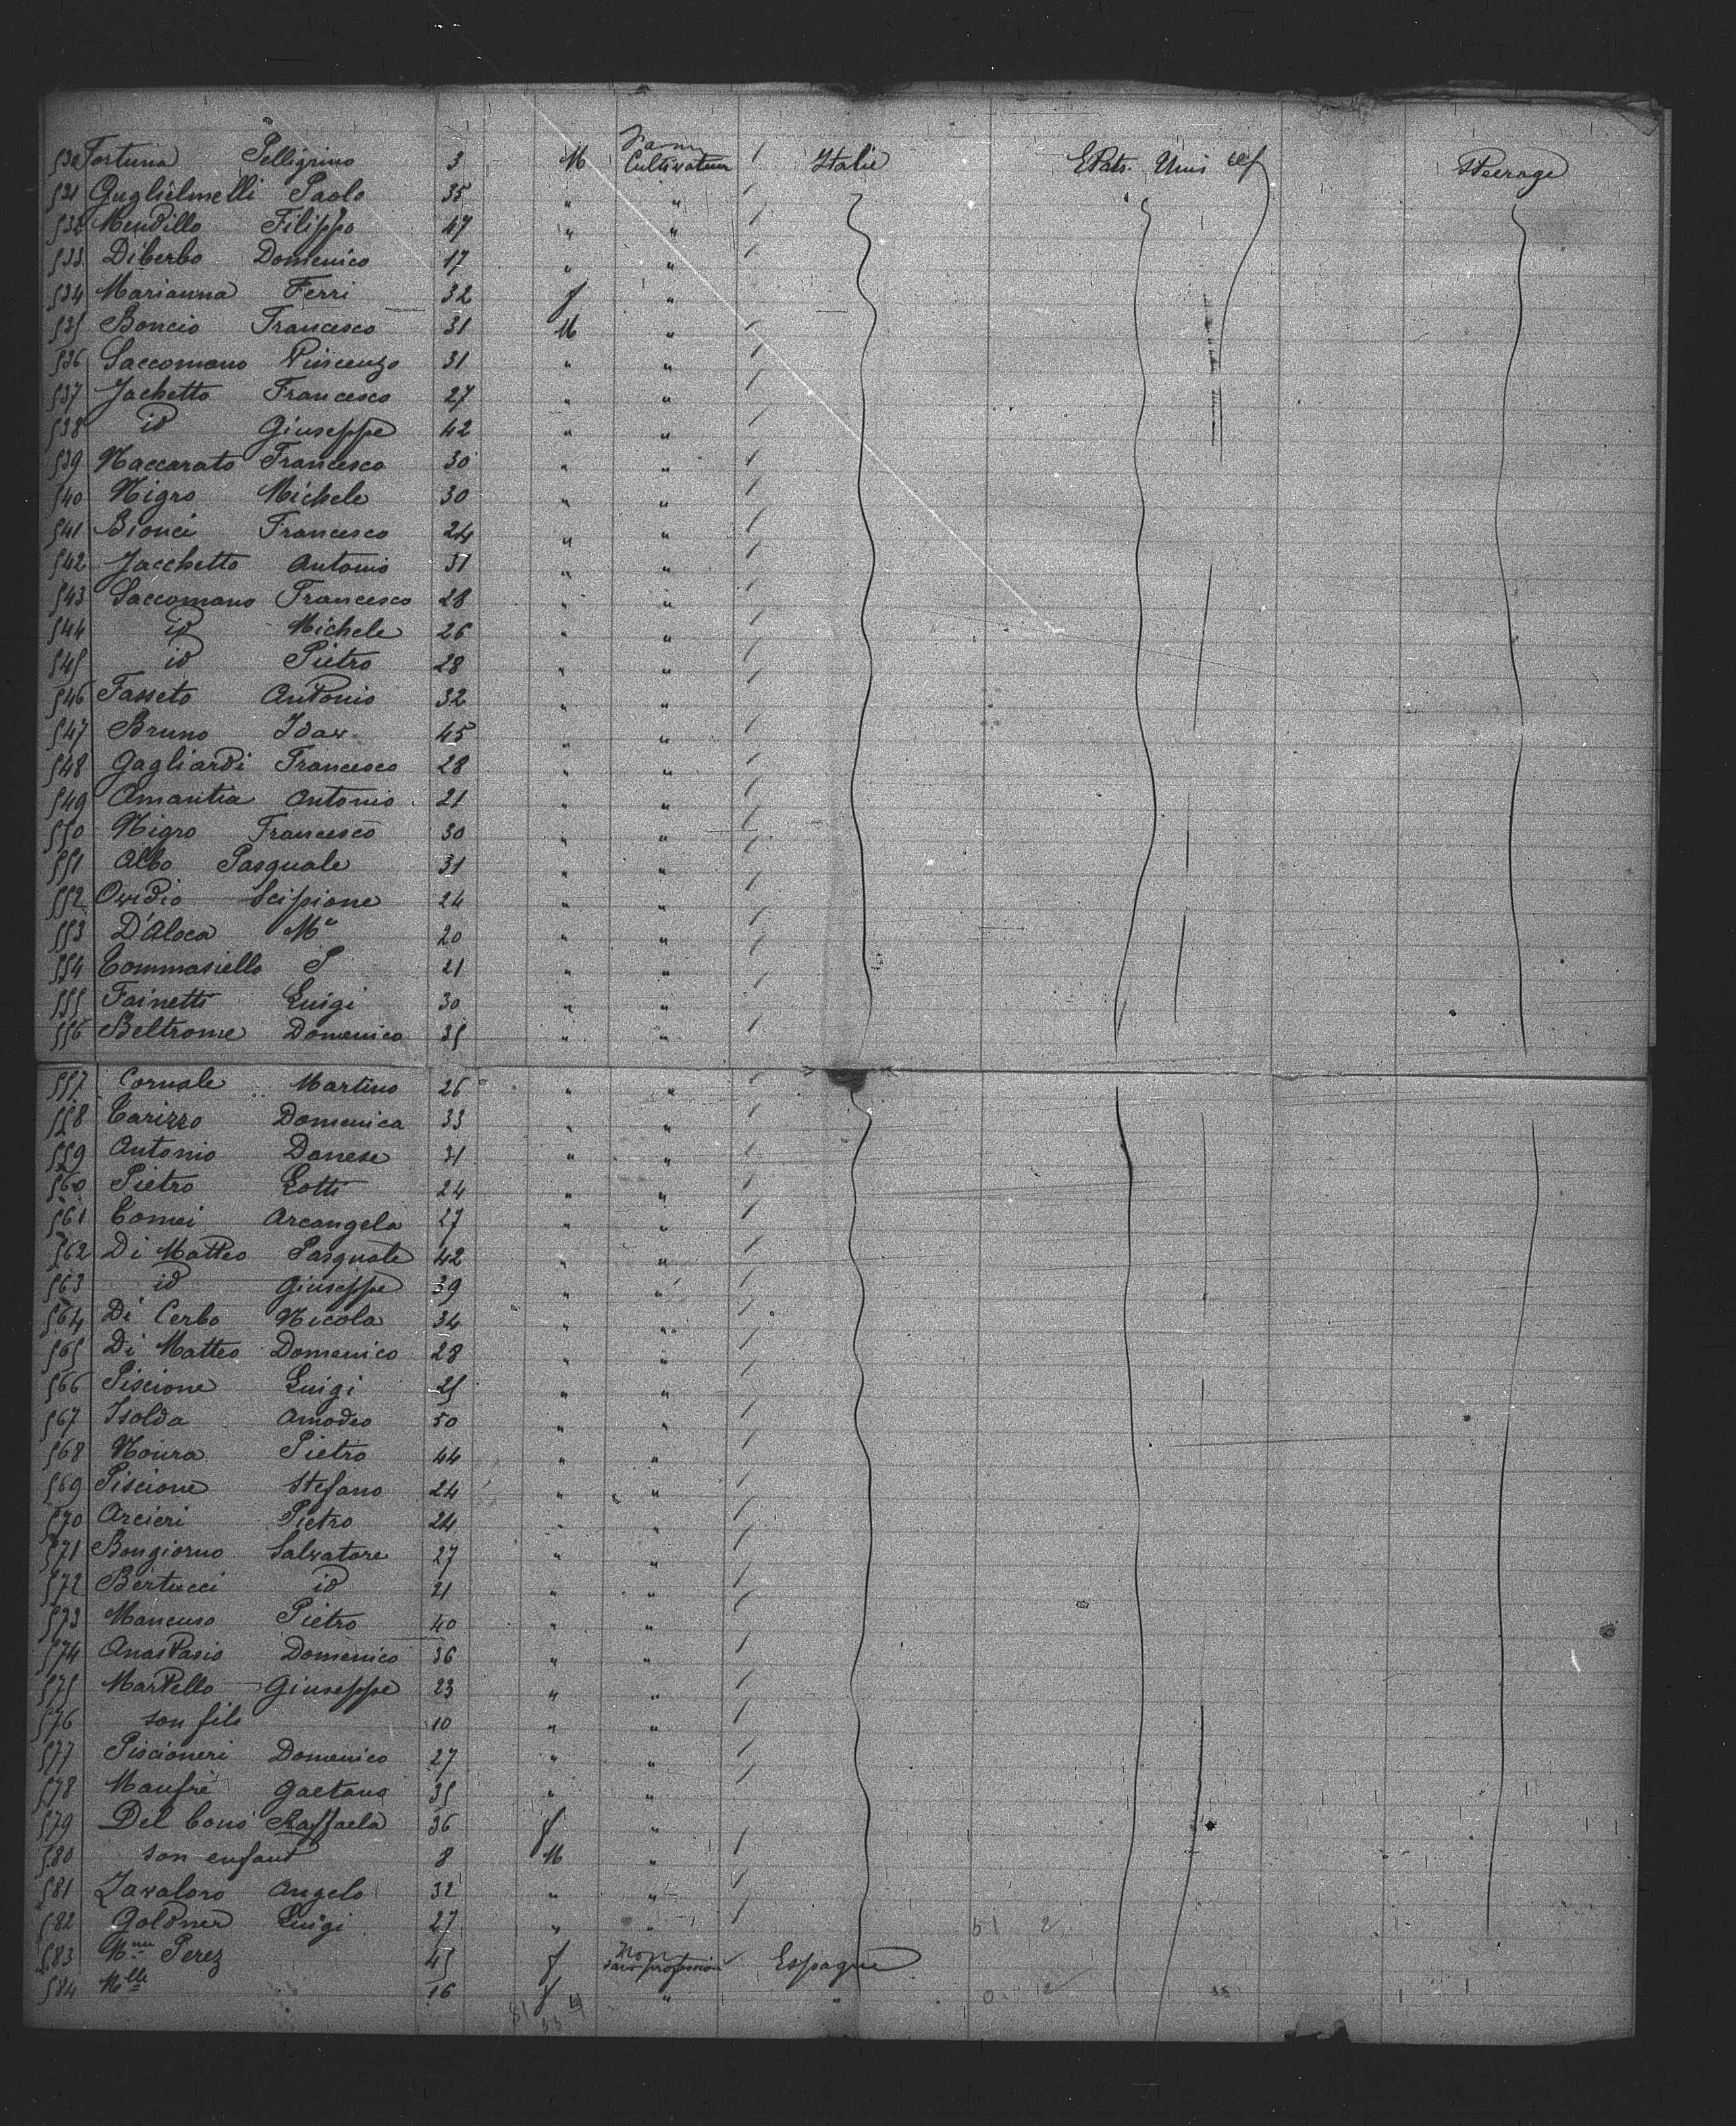 530 Fortuna Pelligrino 3 M Farm Cultivateur / Italie Etats-Unis Steerage
531 Guglielmelli Paolo 35 " " /
532 Mendillo Filippo 47 " " /
533 Diberbo Domenico 17 " " /
534 Marianna Ferri 32 f "
535 Boncio Francesco 31 M " /
536 Saccomano Vincenzo 31 " " /
537 Jachetto Francesco 27 " " /
538 id Giuseppe 42 " " /
539 Naccarato Francesco 30 " " /
540 Nigro Michele 30 " " /
541 Bionci Francesco 24 " " /
542 Jacchetto Antonio 31 " " /
543 Saccomano Francesco 28 " " /
544 id Michele 26 " " /
545 id Pietro 28 " " /
546 Fasseto Antonio 32 " " /
547 Bruno 45 " " /
548 Gagliardi Francesco 28 " " /
549 Amantia Antonio 21 " " /
550 Nigro Francesco 30 " " /
551 Albo Pasquale 31 " " /
552 Ovidio Scipione 24 " " /
553 D'Aloca Ma 20 " " /
554 Tommasiello P 21 " " /
555 Fainetti Luigi 30 " " /
556 Beltrome Domenico 35 " " /
557 Cornale Martino 26 " " /
558 Carizzo Domenica 33 " " /
559 Antonio Danese 31 " " /
560 Pietro Lotti 24 " " /
561 Comei Arcangelo 27 " " /
562 Di Matteo Pasquale 42 " " /
563 id Giuseppe 39 " " /
564 Di Cerbo Nicola 34 " " /
565 Di Matteo Domenico 28 " " /
566 Piscione Luigi 25 " " /
567 Isolda Amodeo 50 " " /
568 Noura Pietro 44 " " /
569 Piscione Stefano 24 " " /
570 Arcieri Pietro 24 " " /
571 Bongiorno Salvatore 27 " " /
572 Bertucci id 21 " " /
573 Mancuso Pietro 40 " " /
574 Anastasio Domenico 36 " " /
575 Martello Giuseppe 23 " " /
576 son fils 10 " " /
577 Piscioneri Domenico 27 " " /
578 Maufrè Gaetano 35 " " /
579 Del Cono Raffaela 36 f "
580 son enfant 8 M " /
581 Zavaloro Angelo 32 " " /
582 Goldner Luigi 27 " " / 51 2
583 Mme Perez 45 f Non sans profession Espagne
584 Mlle 16 f " " 0 2